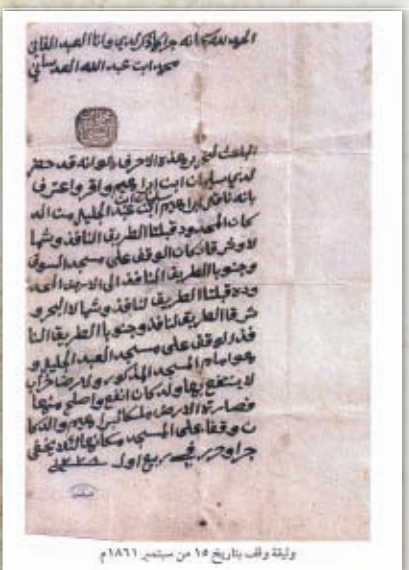 الحمد لله سبحانه جرا ذكر لدي وانا العبد الفاني
محمد ابن عبد الله العدساني
الباعث لتحرير هذه الاحرف هو انه قد حضر
لدي سليمان ابن ابراهيم واقر واعترف
بانه ناقل ابراهيم عبد الجليل من الد
كان المحدود قبلتا الطريق النافذ وشما
لا وشرقا دكان الوقف على مسجد السوق
وجنوبا الطريق النافذ الى الارض المحد
وده قبلتا الطريق النافذ وشمالا البحر و
شرقا الطريق النافذ وجنوبا الطريق النا
فذ الوقف على مسجد العبد الجليل و
هو امام المسجد المذكور والارض خراب
لا ينتفع بها والدكان انفع واصلح منها
فصارة الارض ملكا لبراهيم والدكا
ن وقفا على المسجد مكانها لئلا يخفى
جرا وحرر في ربيع اول ١٢٧٨
وثيقة وقف بتاريخ ١٥ من سبتمبر ١٨٦١م